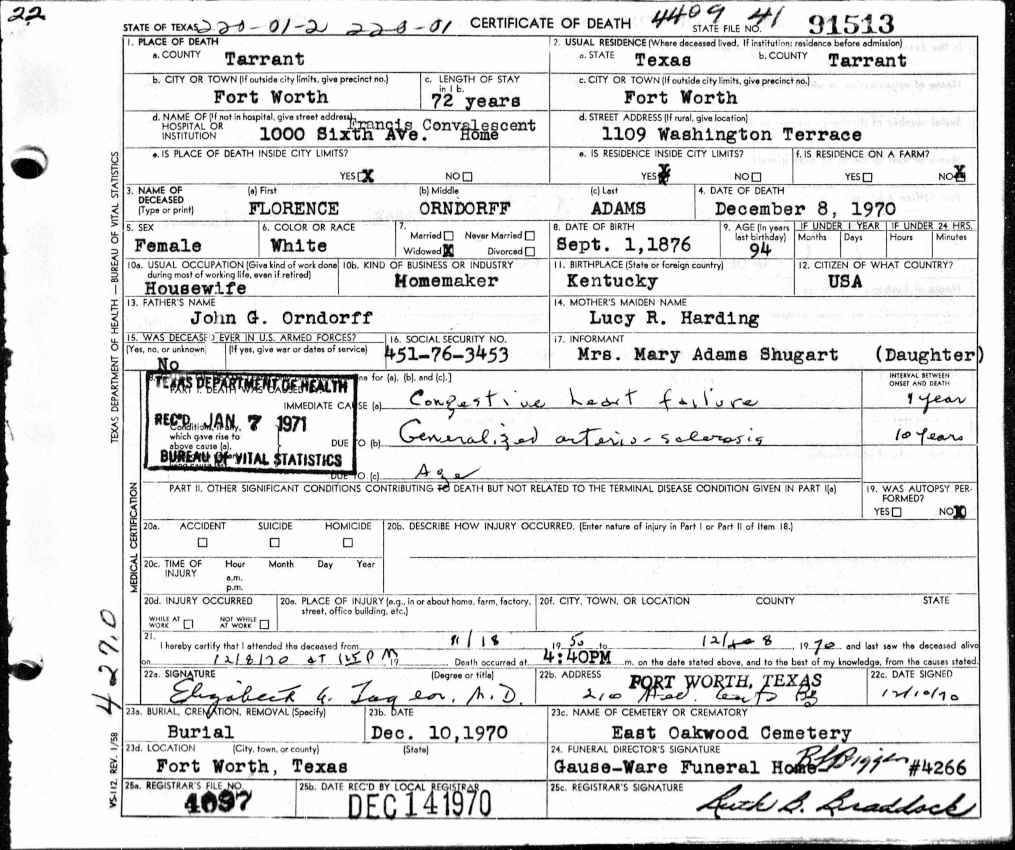 22
STATE OF TEXAS 220-01-2 220-01 CERTIFICATE OF DEATH 4409 41 STATE FILE NO. 91513
1. PLACE OF DEATH
a. COUNTY Tarrant
2. USUAL RESIDENCE (Where deceased lived. If institution: residence before admission)
a. STATE Texas b. COUNTY Tarrant
b. CITY OR TOWN (If outside city limits, give precinct no.) Fort Worth
c. LENGTH OF STAY in 1 b. 72 years
c. CITY OR TOWN (If outside city limits, give precinct no.) Fort Worth
d. NAME OF (If not in hospital, give street address) HOSPITAL OR INSTITUTION Francis Convalescent
1000 Sixth Ave. Home
d. STREET ADDRESS (If rural, give location) 1109 Washington Terrace
e. IS PLACE OF DEATH INSIDE CITY LIMITS?
YES X NO
e. IS RESIDENCE INSIDE CITY LIMITS?
YES X NO
f. IS RESIDENCE ON A FARM?
YES NO X
3. NAME OF DECEASED (Type or print)
(a) First FLORENCE
(b) Middle ORNDORFF
(c) Last ADAMS
4. DATE OF DEATH December 8, 1970
5. SEX Female
6. COLOR OR RACE White
7. Married Never Married
Widowed X Divorced
8. DATE OF BIRTH Sept. 1,1876
9. AGE (In years last birthday) 94
IF UNDER 1 YEAR Months Days
IF UNDER 24 HRS. Hours Minutes
10a. USUAL OCCUPATION (Give kind of work done during most of working life, even if retired) Housewife
10b. KIND OF BUSINESS OR INDUSTRY Homemaker
11. BIRTHPLACE (State or foreign country) Kentucky
12. CITIZEN OF WHAT COUNTRY? USA
13. FATHER'S NAME John G. Orndorff
14. MOTHER'S MAIDEN NAME Lucy R. Harding
15. WAS DECEASED EVER IN U.S. ARMED FORCES?
(Yes, no, or unknown) (If yes, give war or dates of service)
No
16. SOCIAL SECURITY NO. 451-76-3453
17. INFORMANT Mrs. Mary Adams Shugart (Daughter)
for (a), (b), and (c).]
INTERVAL BETWEEN ONSET AND DEATH
TEXAS DEPARTMENT OF HEALTH
REC'D JAN 7 1971
BUREAU OF VITAL STATISTICS
IMMEDIATE CAUSE (a) Congestive heart failure 1 year
Conditions, if any, which gave rise to above cause (a),
DUE TO (b) Generalized arterio-sclerosis 10 years
DUE TO (c) Age
PART II. OTHER SIGNIFICANT CONDITIONS CONTRIBUTING TO DEATH BUT NOT RELATED TO THE TERMINAL DISEASE CONDITION GIVEN IN PART I(a)
19. WAS AUTOPSY PERFORMED?
YES NO X
20a. ACCIDENT SUICIDE HOMICIDE
20b. DESCRIBE HOW INJURY OCCURRED. (Enter nature of injury in Part I or Part II of Item 18.)
20c. TIME OF INJURY Hour Month Day Year
a.m.
p.m.
20d. INJURY OCCURRED
WHILE AT WORK NOT WHILE AT WORK
20e. PLACE OF INJURY (e.g., in or about home, farm, factory, street, office building, etc.)
20f. CITY, TOWN, OR LOCATION COUNTY STATE
21. I hereby certify that I attended the deceased from 11/18 19 50 to 12/8 1970 and last saw the deceased alive
on 12/8/70 AT PM 19 Death occurred at 4:40PM m. on the date stated above, and to the best of my knowledge, from the causes stated.
22a. SIGNATURE (Degree or title) Elizabeth G. M.D.
22b. ADDRESS FORT WORTH, TEXAS
210
22c. DATE SIGNED 12/10/70
23a. BURIAL, CREMATION, REMOVAL (Specify) Burial
23b. DATE Dec. 10,1970
23c. NAME OF CEMETERY OR CREMATORY East Oakwood Cemetery
23d. LOCATION (City, town, or county) (State)
Fort Worth, Texas
24. FUNERAL DIRECTOR'S SIGNATURE
Gause-Ware Funeral Home #4266
25a. REGISTRAR'S FILE NO. 4097
25b. DATE REC'D BY LOCAL REGISTRAR DEC 14 1970
25c. REGISTRAR'S SIGNATURE Ruth B. Braddock
TEXAS DEPARTMENT OF HEALTH — BUREAU OF VITAL STATISTICS
MEDICAL CERTIFICATION
VS-112. REV. 1/58
4270